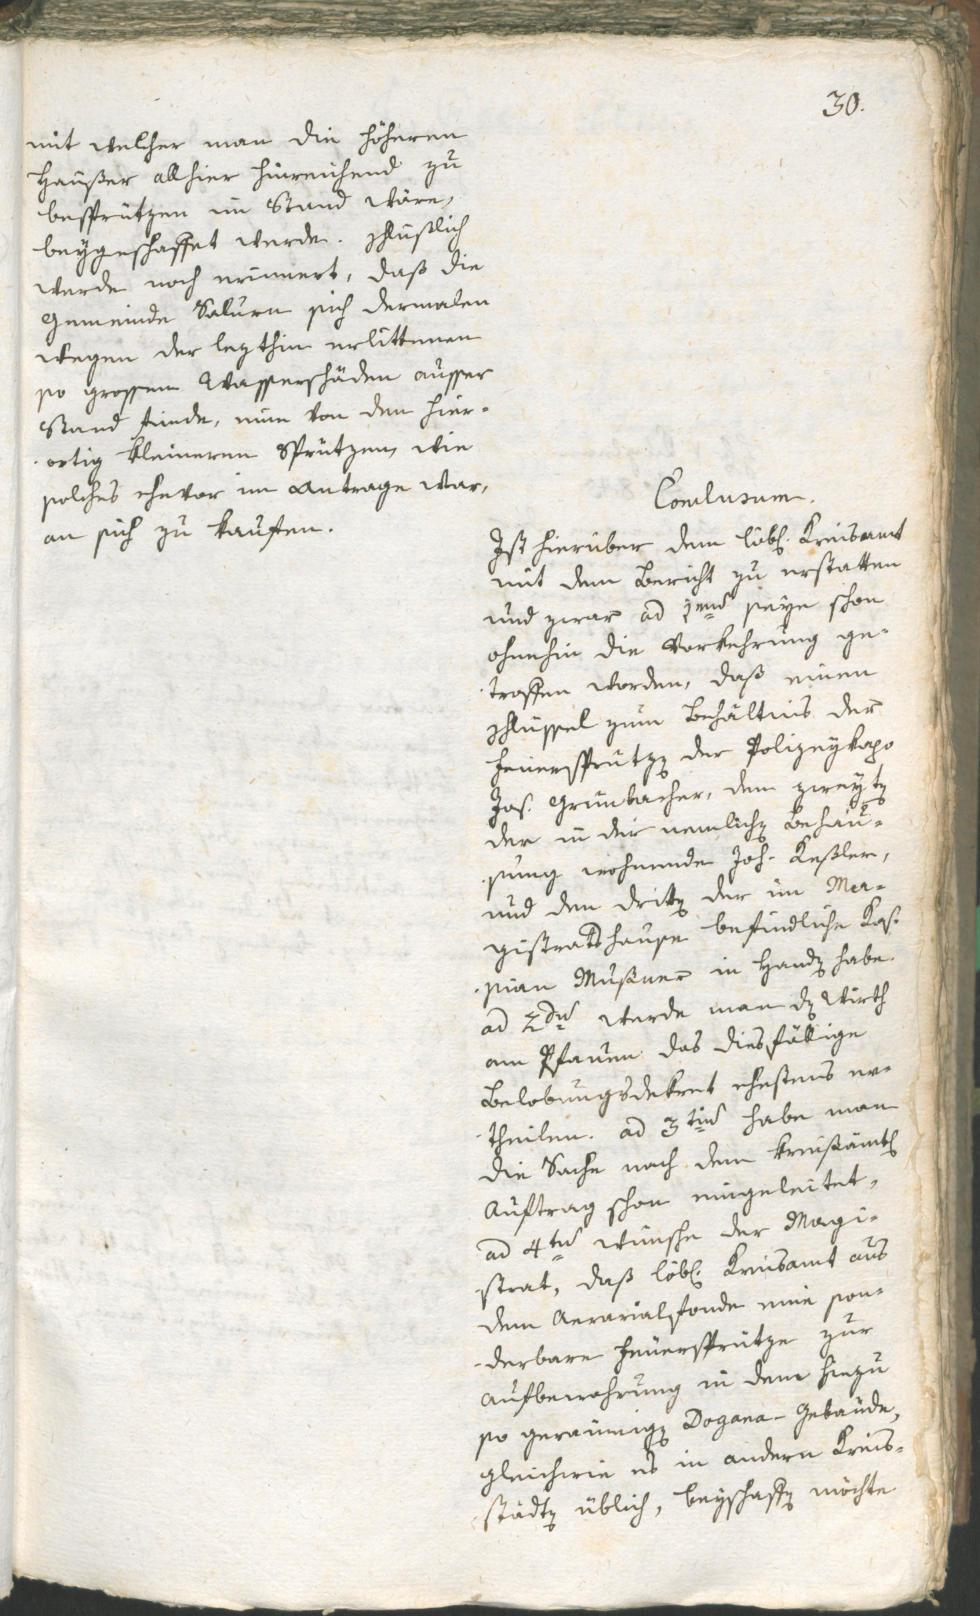 30.
mit welcher man die höheren
Häußer allhier hinreichend zu
besprützen im Stand wäre,
beygeschaffet werde. Schlüßlich
werde noch erinnert, daß die
Gemeinde Salurn sich dermalen
wegen der lezthin erlittenen
so grossen Wasserschäden ausser
Stand finde, eine von den hier-
ortig kleineren Sprützen, wie
solches ehevor im Antrage war,
an sich zu kaufen.
Conclusum.
Ist hierüber dem löbl. Kreisamt
mit dem Bericht zu erstatten
und zwar ad 1mum seye schon
ohnehin die Vorkehrung ge-
troffen worden, daß einen
Schlüssel zum Behältnis der
Feuersprütze der Polizeykapo
Jos. Grünbacher, den zweyten
der in der nemlichen Behau-
sung wohnende Joh. Keßler,
und den dritten der im Ma-
gistratshause befindliche Kas-
sian Mußner in Handen habe.
ad 2dum werde man den Wirth
am Pfauen das diesfällige
Belobungsdekret ehestens er-
theilen. ad 3tium habe man
die Sache nach dem kreisämtl.
Auftrag schon eingeleitet,
ad 4tum wünsche der Magi-
strat, daß löbl. Kreisamt aus
dem Aerarialfonde eine son-
derbare Feuersprütze zur
Aufbewahrung in dem hiezu
so geräumigen Dogana-Gebäude,
gleichwie es in andern Kreis-
städten üblich, beyschaffen möchte